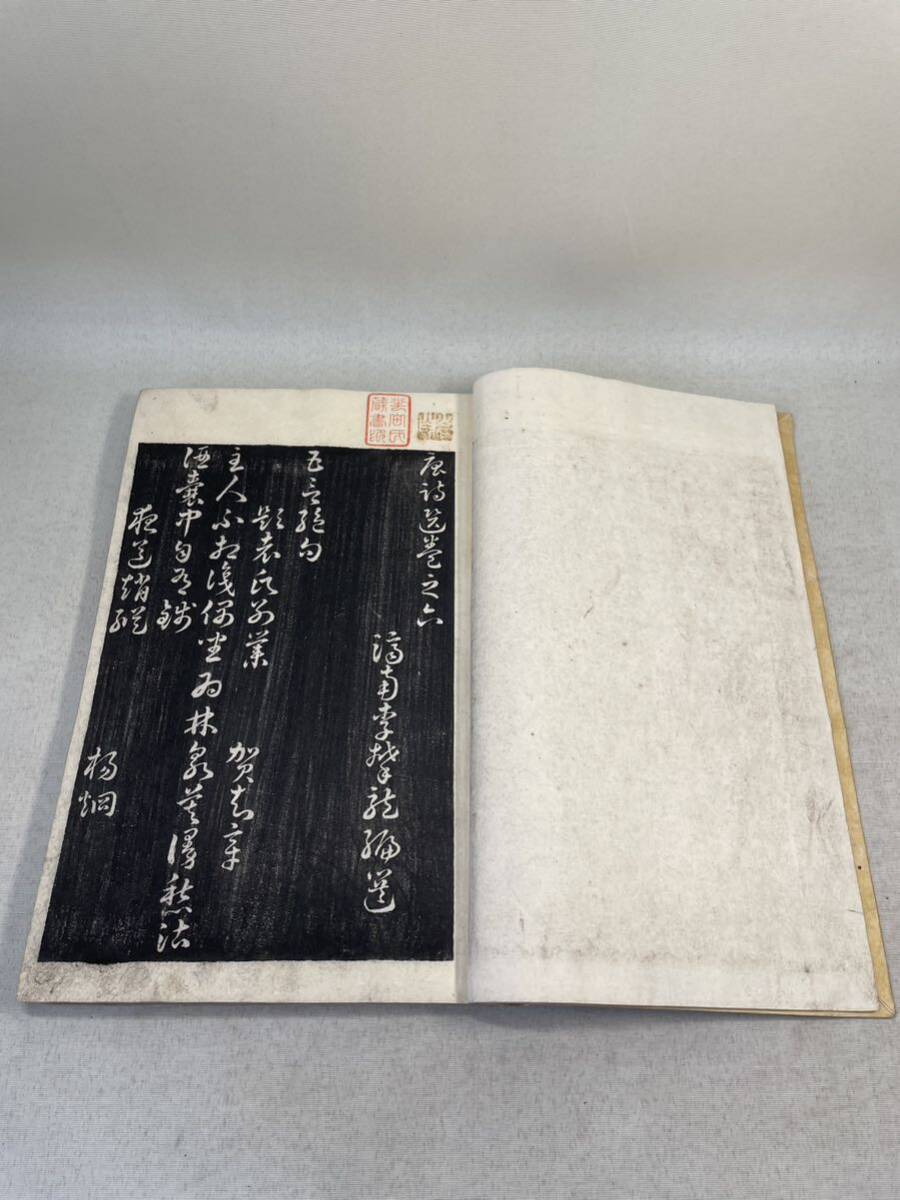 唐詩選卷之六
濟南李攀龍編選
五言絶句
題袁氏別業 賀知章
主人不相識偶坐為林泉莫謾愁沽
酒囊中自有錢
夜送趙縱 楊炯